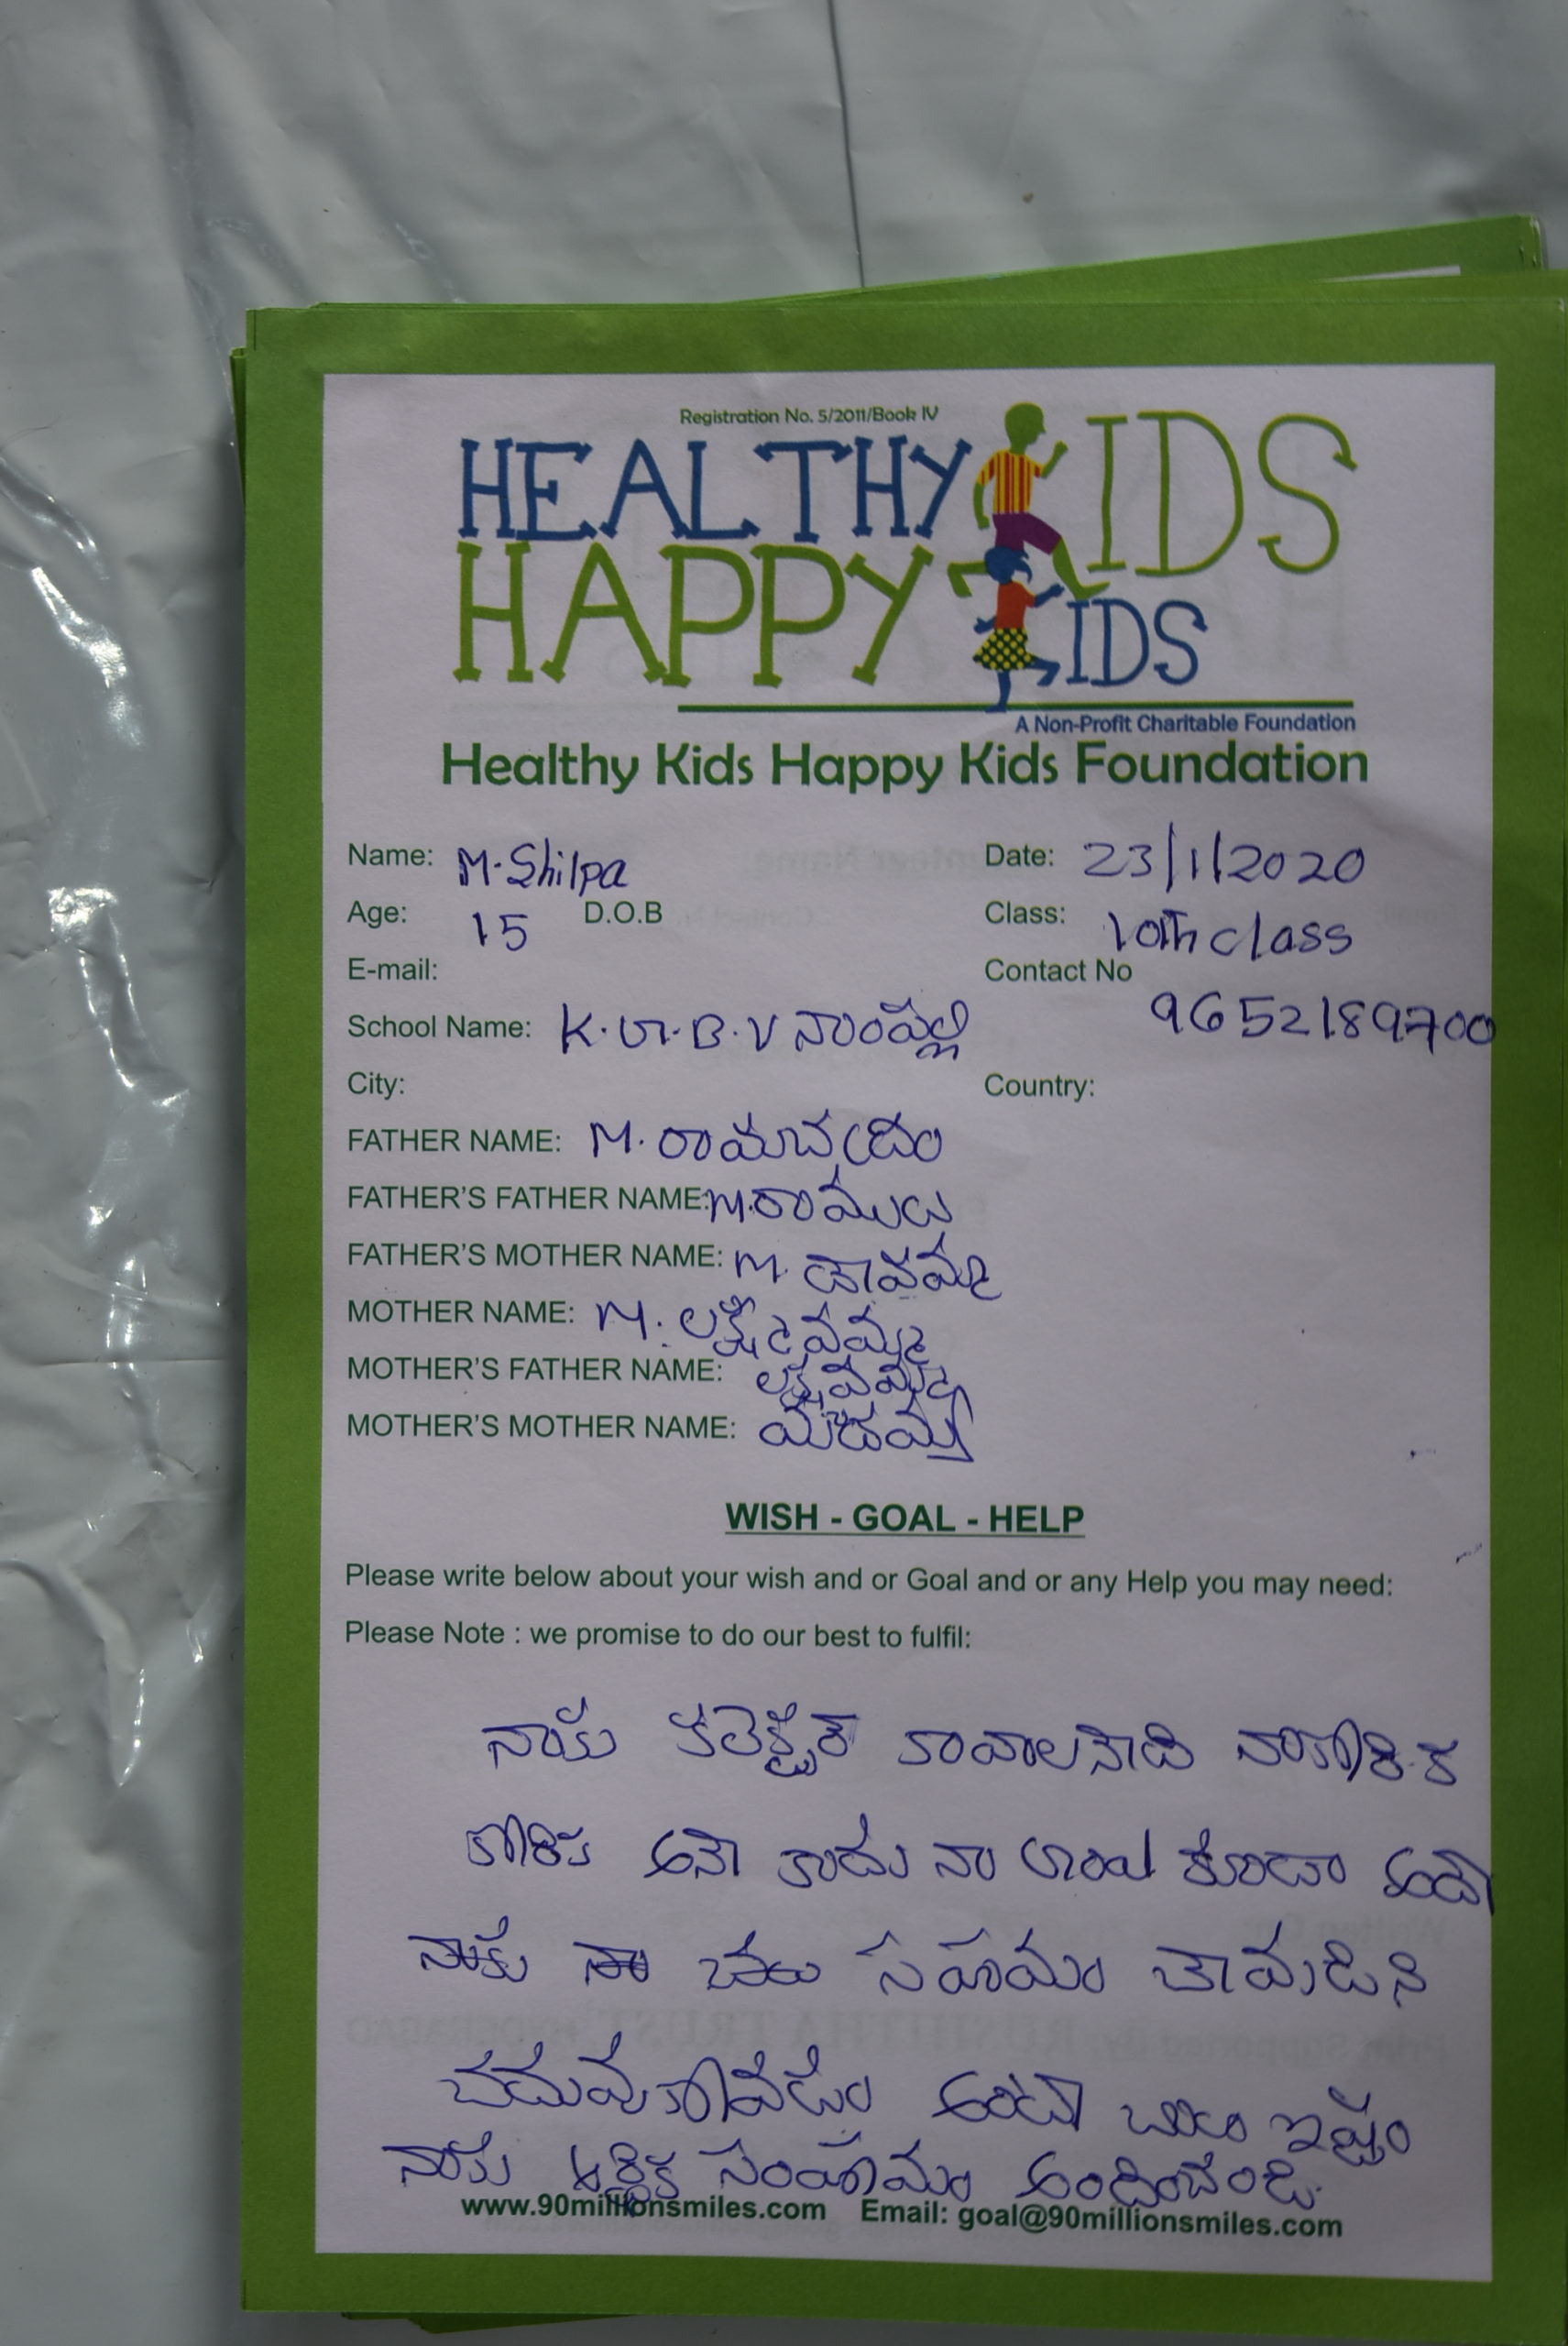 Registration No. 5/2011/Book IV
HEALTHY KIDS
HAPPY KIDS
A Non-Profit Charitable Foundation
Healthy Kids Happy Kids Foundation
Name: M. Shilpa Date: 23/1/2020
Age: 15 D.O.B Class: 10th class
E-mail: Contact No
9652189700
School Name: K.G.B.V నాంపల్లి
City: Country:
FATHER NAME: M. రామచంద్రం
FATHER'S FATHER NAME: M. రాములు
FATHER'S MOTHER NAME: M.
MOTHER NAME: M.
MOTHER'S FATHER NAME:
MOTHER'S MOTHER NAME:
WISH - GOAL - HELP
Please write below about your wish and or Goal and or any Help you may need:
Please Note : we promise to do our best to fulfil:
నాకు కలెక్టర్ కావాలనేది
కోరిక అనే కాదు నా Goal కూడా అదే
నాకు సహయం
చదువుకోవడం అంటే చాల ఇష్టం
నాకు ఆర్థిక సంహాయం అందించండి.
www.90millionsmiles.com Email: goal@90millionsmiles.com